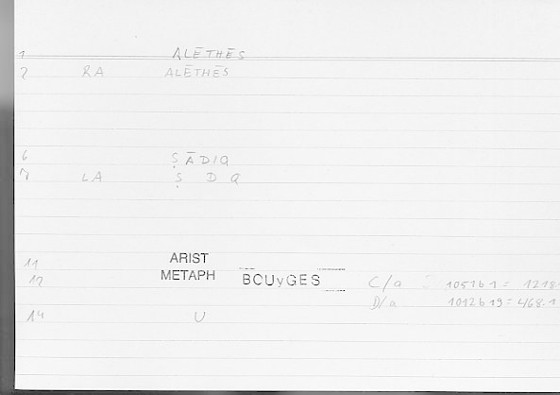 1 ALĒTHĒS
2 RA ALĒTHĒS
6 ṢĀDIQ
7 LA Ṣ D Q
11 ARIST
12 METAPH BOUyGES C/a : 1051b1 = 1218.
D/a 1012b19 = 468.1
14 U